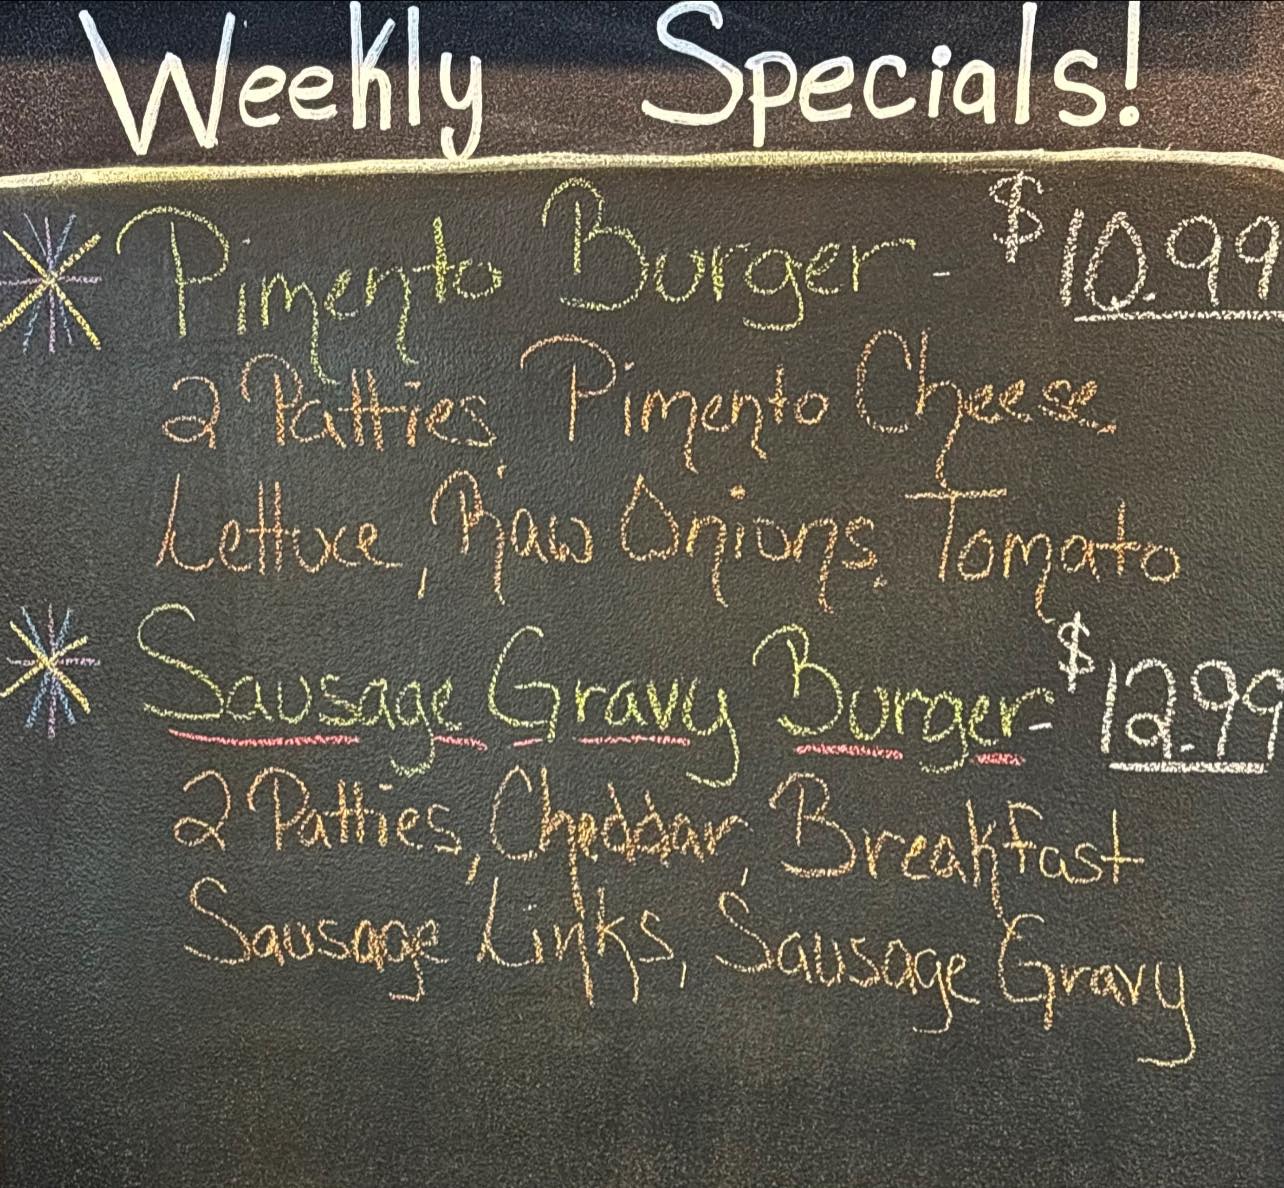 Weekly Specials!
Pimento Burger - $10.99
2 Patties, Pimento Cheese,
Lettuce, Raw Onions, Tomato
Sausage Gravy Burger - $12.99
2 Patties, Cheddar, Breakfast
Sausage Links, Sausage Gravy